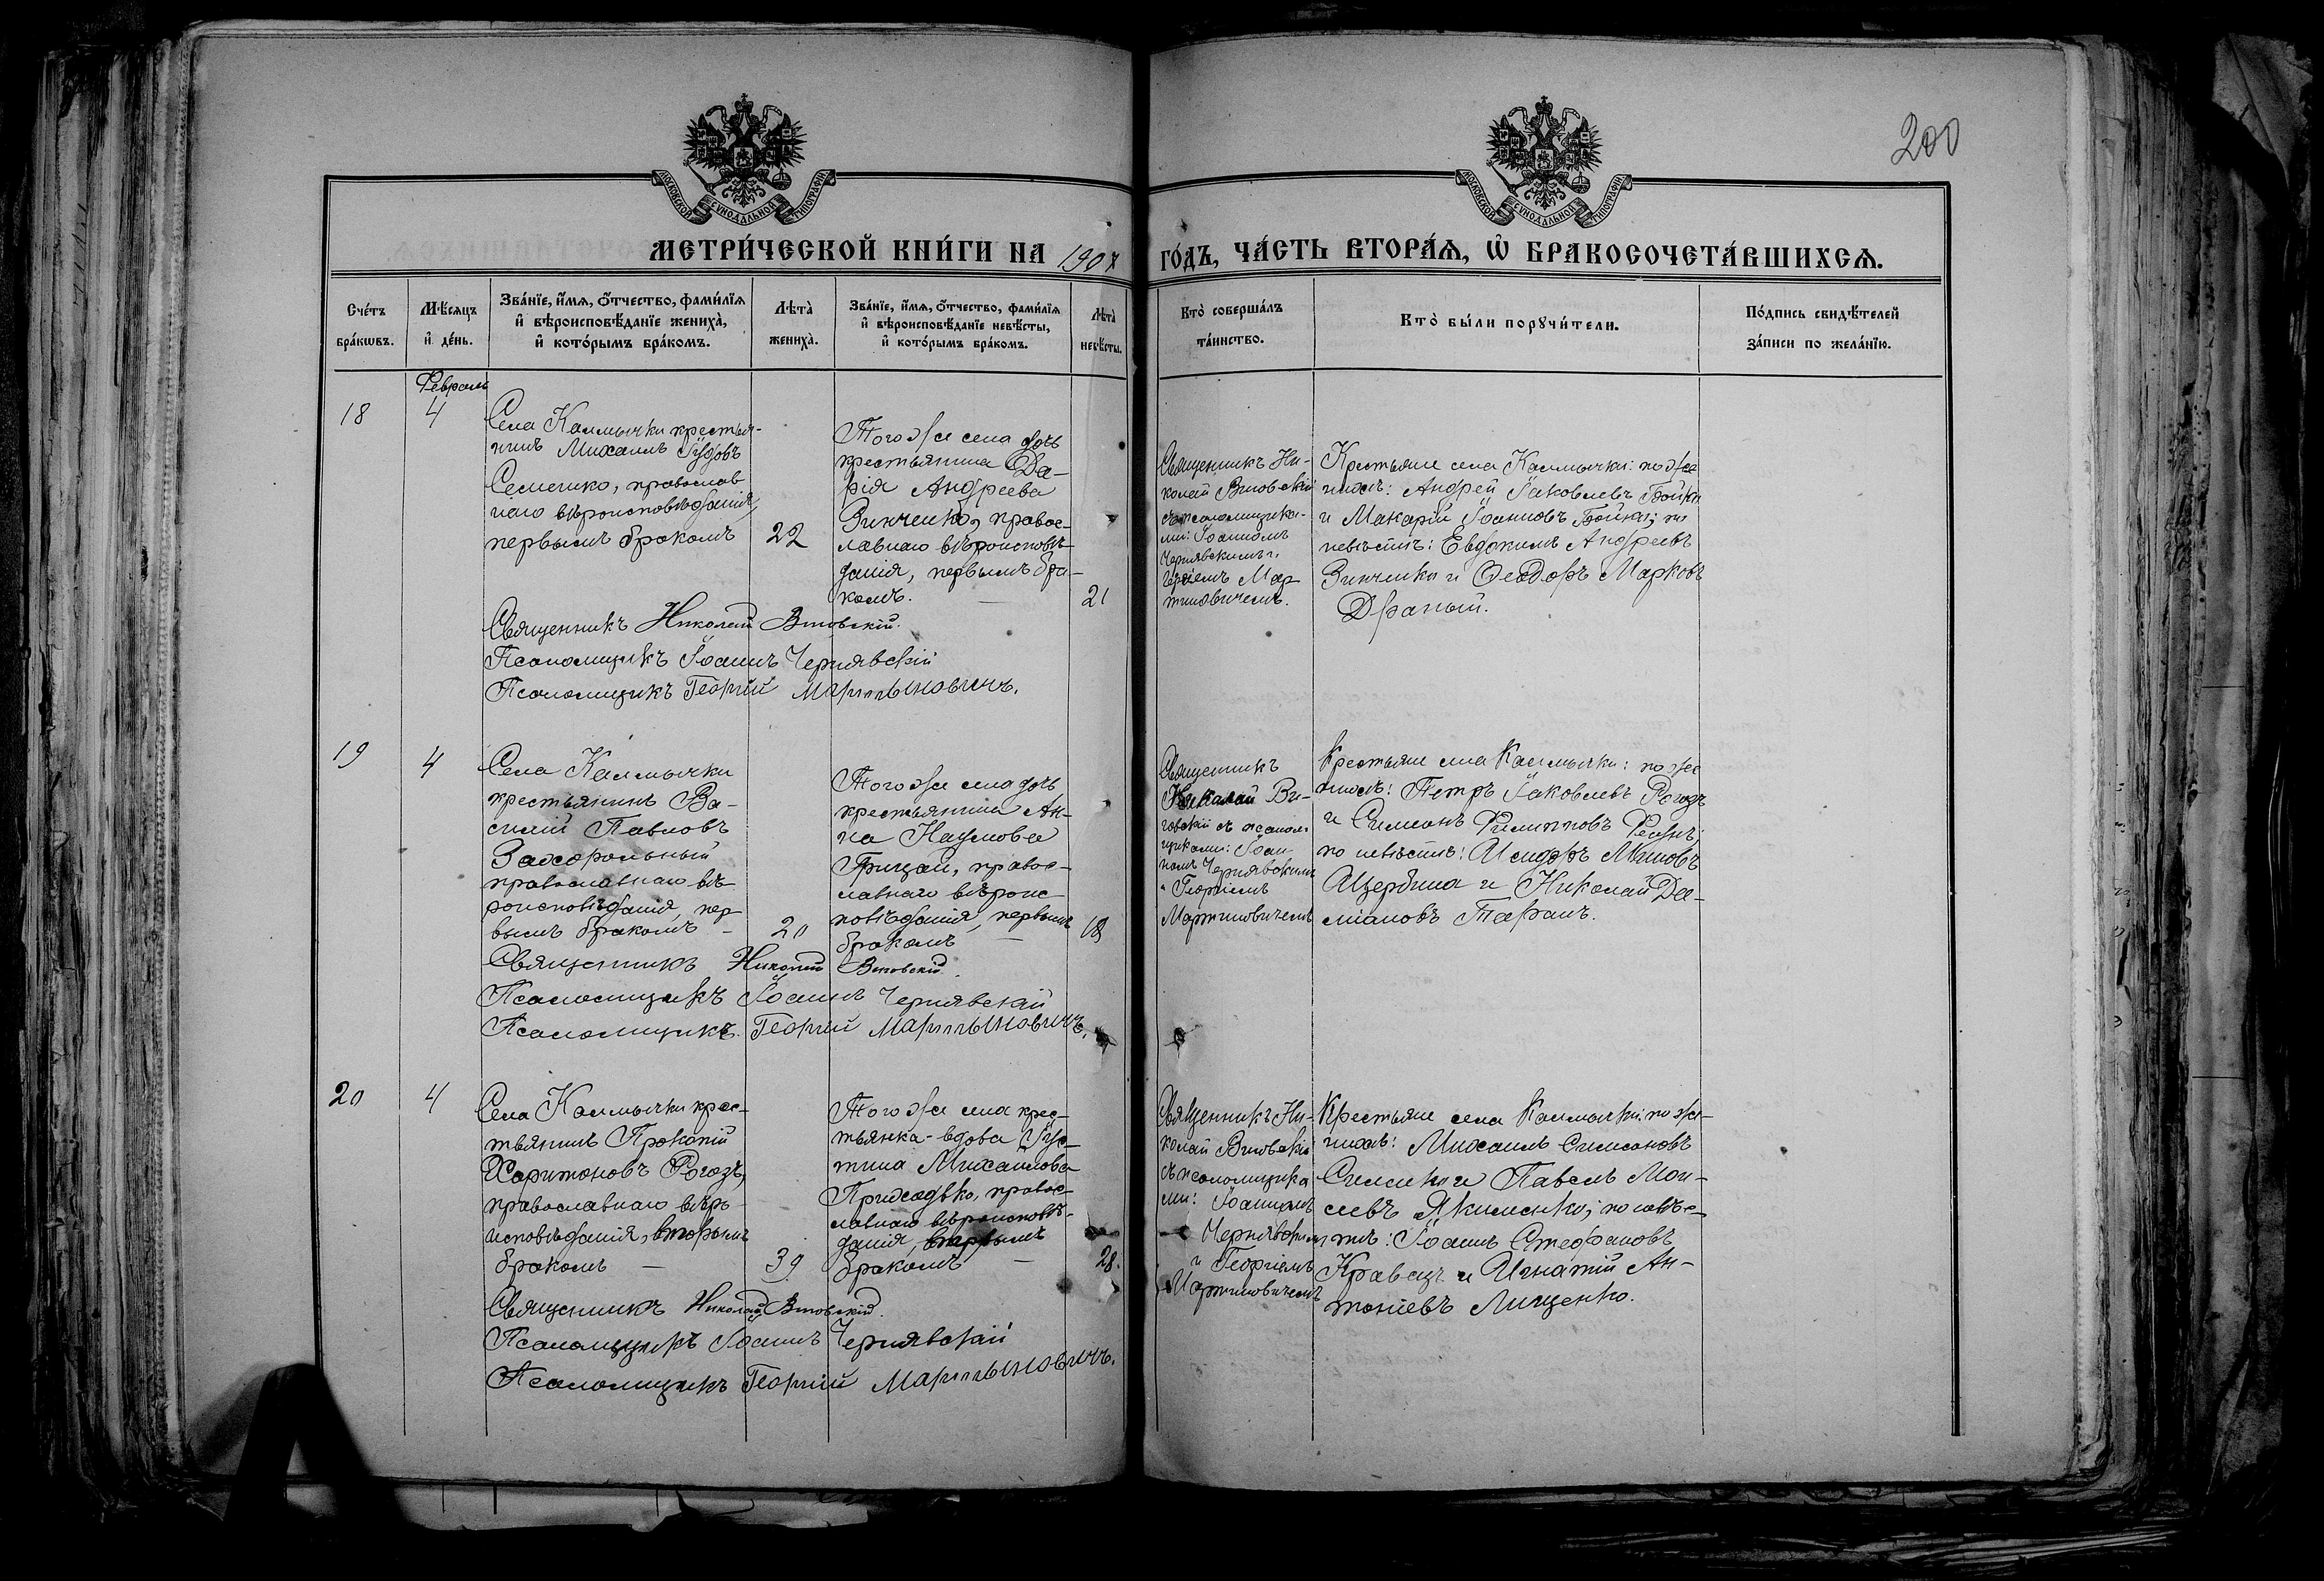 200
МОСКОВСКОЙ СѴНОДАЛЬНОЙ ТИПОГРАФІИ
МОСКОВСКОЙ СѴНОДАЛЬНОЙ ТИПОГРАФІИ
МЕТРИ́ЧЕСКОЙ КНИ́ГИ НА 1907
ГО́ДЪ, ЧА́СТЬ ВТОРА́Я, Ѡ БРАКОСОЧЕТА́ВШИХСЯ.
Сче́тъ бра́кѡвъ.
Мѣ́сяцъ и де́нь.
Зва́нїе, и́мя, ѻ́тчество, фами́лїя
и вѣроисповѣ́данїе жениха̀,
и кото́рымъ бра́комъ.
Лѣта̀ жениха̀.
Зва́нїе, и́мя, ѻ́тчество, фами́лїя
и вѣроисповѣ́данїе невѣ́сты,
и кото́рымъ бра́комъ.
Лѣта̀ невѣ́сты.
Кто̀ соверша́лъ
та́инство.
Кто̀ бы́ли порꙋчи́тели.
По́дпись свидѣ́телей
за́писи по жела́нїю.
Февраль
18
4
Села Калмычки крестья-
нинъ Михаилъ
Семенко, православ
наго вѣроисповѣданія,
первымъ бракомъ
22
Того же села дочь
крестьянина Да-
рія Андреева
Зинченко, правос-
лавнаго вѣроисповѣ-
данія, первымъ бра-
комъ.
21
Священникъ Ни-
колай Витовскій
съ псаломщика-
ми: Іоанномъ
Чернявскимъ и
Георгіемъ Мар-
тиновичемъ.
Крестьяне села Калмычки: по же
нихѣ: Андрей Іаковлевъ Бойко
и Макарій Іоанновъ Бойко; по
невѣстѣ: Евдокимъ Андреевъ
Зинченко и Ѳеодоръ Марковъ
Драный.
Священникъ Николай Витовскій.
Псаломщикъ Іоаннъ Чернявскій
Псаломщикъ Георгій Мартыновичъ.
19
4
Села Калмычки
крестьянинъ Ва-
силій Павловъ
православнаго вѣ-
роисповѣданія, пер
вымъ бракомъ
20
Того же села дочь
крестьянина Ан-
на Наумова
Грицай, правос-
лавнаго вѣроис
повѣданія, первымъ
бракомъ
18
Священникъ
Николай Ви-
товскій съ псалом-
щиками: Іоан
номъ Чернявскимъ
и Георгіемъ
Мартиновичемъ
Крестьяне села Калмычки: по же
нихѣ: Петръ Іаковлевъ Рогозъ
и Симеонъ Филипповъ
по невѣстѣ: Исидоръ
Щербина и Николай Да-
міановъ Таранъ.
Священникъ Николай Витовскій.
Псаломщикъ Іоаннъ Чернявскій
Псаломщикъ Георгій Мартыновичъ.
20
4
Села Калмычки крес-
тьянинъ Прокопій
Харитоновъ Рогозъ,
православнаго вѣро-
исповѣданія, вторымъ
бракомъ
39
Того же села крес-
тьянка-вдова Іус-
тина Михайлова
Приходько, правос-
лавнаго вѣроисповѣ-
данія, вторымъ
бракомъ
28.
Священникъ Ни-
колай Витовскій
съ псаломщика
ми: Іоанномъ
Чернявскимъ
и Георгіемъ
Мартиновичемъ
Крестьяне села Калмычки: по же-
нихѣ: Михаилъ Симеоновъ
и Павелъ Мои-
сеевъ Якименко; по невѣс-
тѣ: Іоаннъ Стефановъ
Кравецъ и Игнатій Ан-
тоніевъ Лищенко.
Священникъ Николай Витовскій.
Псаломщикъ Іоаннъ Чернявскій
Псаломщикъ Георгій Мартыновичъ.